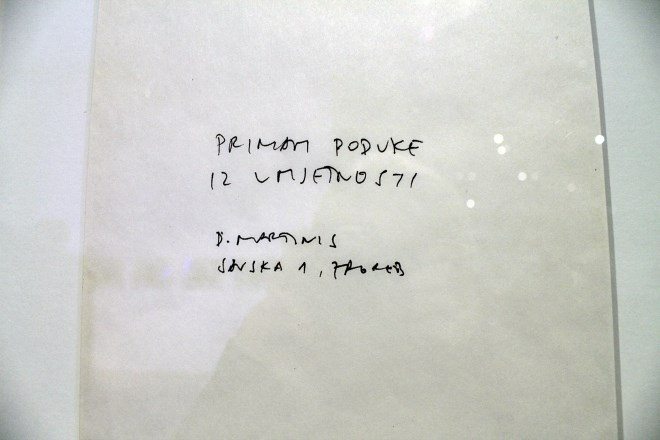 PRIMAM PODUKE
IZ UMJETNOSTI
D. MARTINIS
SAVSKA 1, ZAGREB